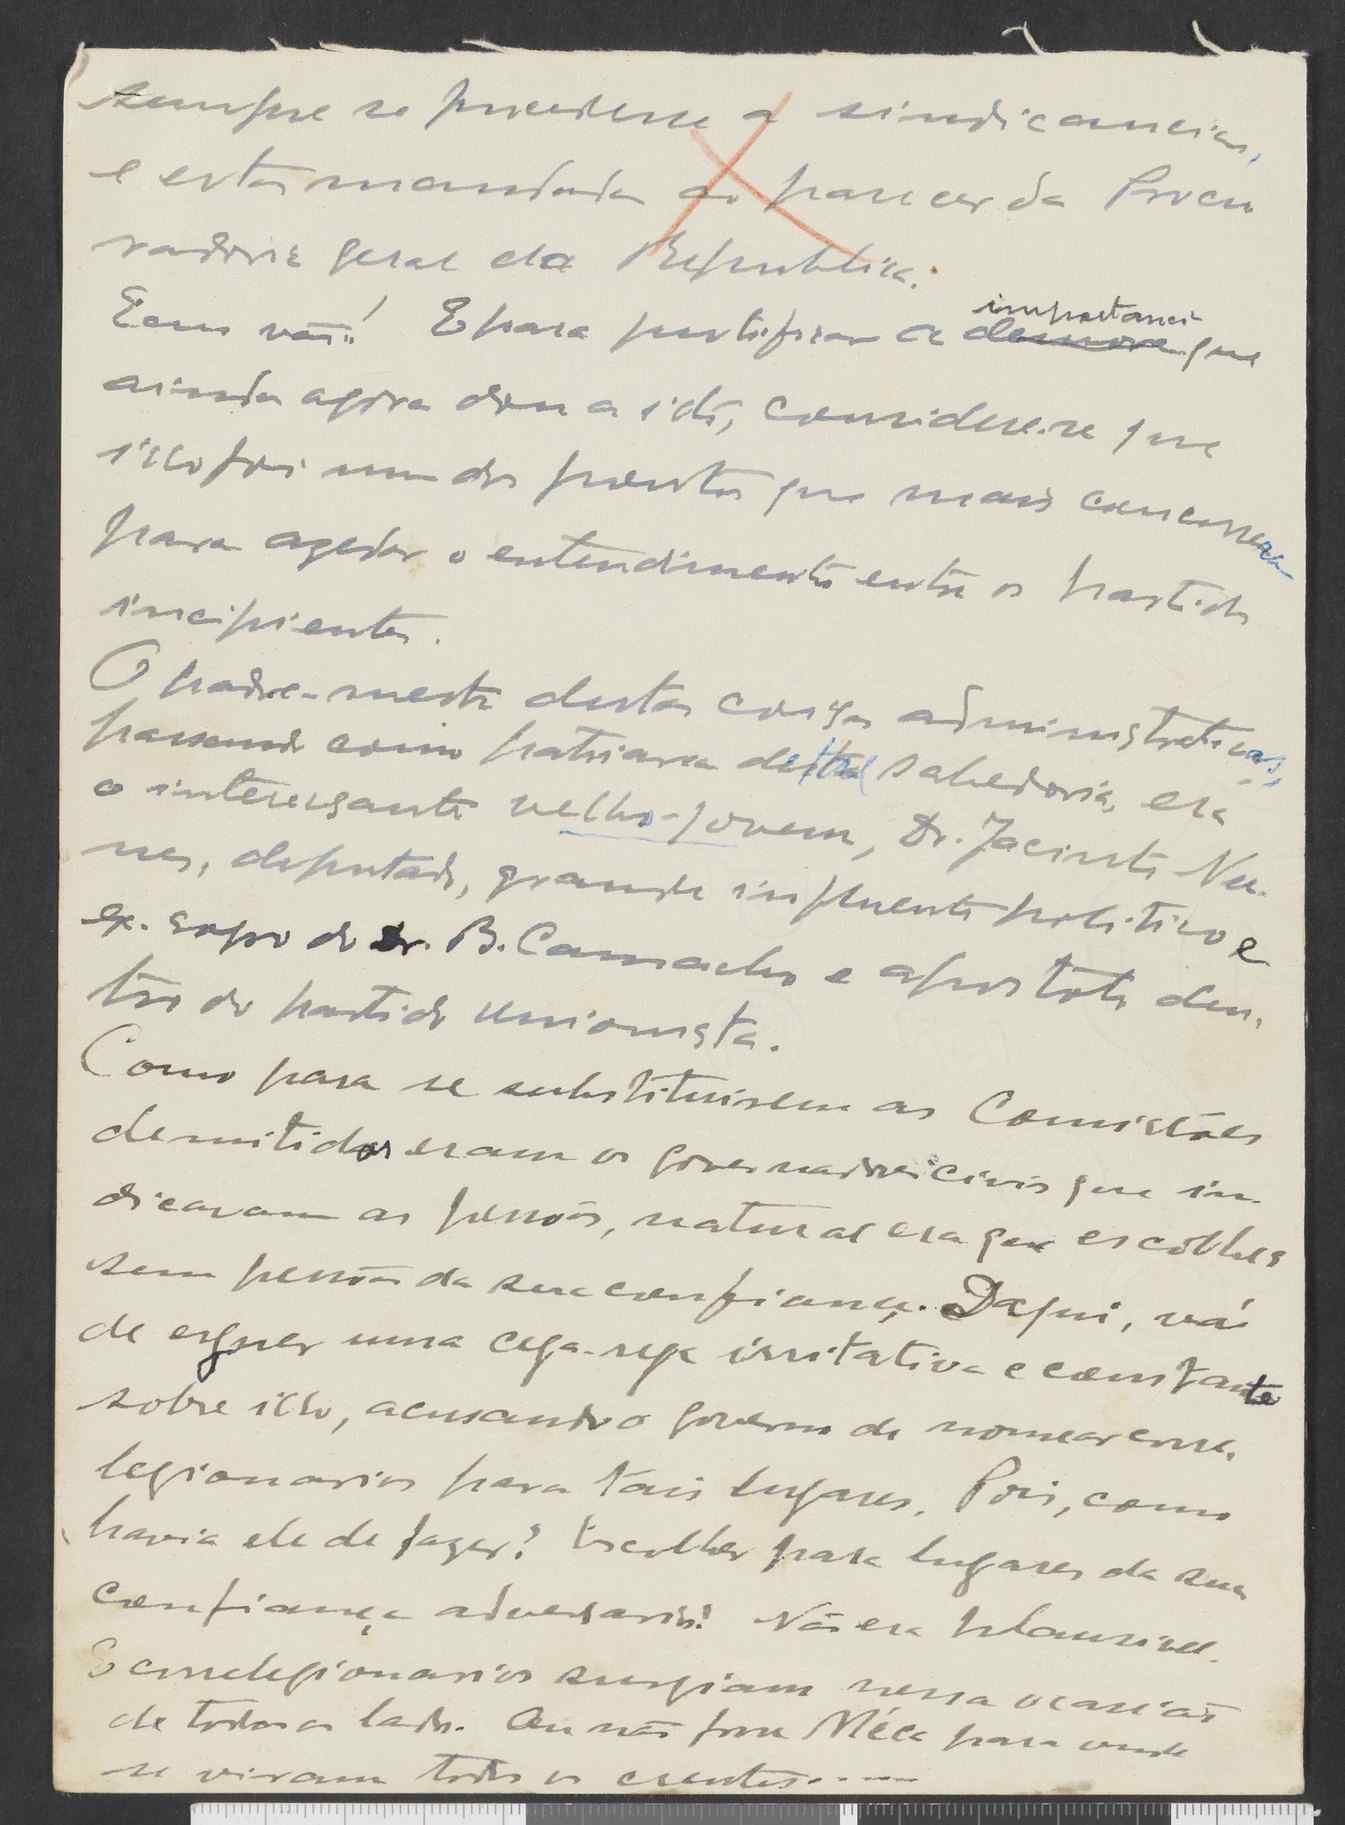 sempre se procedesse a sindicancias,
e estas mandadas ao parecer da Procu
radoria geral da Republica.
E em vão! E para justificar a importancia que
ainda agora dou a isto, considere-se que
isso foi um dos pontos que mais concorreram
para azedar o entendimento entre os partidos
incipientes.
O padre-mestre destas coisas administrativas,
passando como patriarca desta sabedoria, era
o interessante velho-jovem, Dr. Jacinto Nu-
nes, deputado, grande influente politico e
ex. sogro do Dr. B. Camacho e apostata den-
tro do partido unionista.
Como para se substituirem as Comissões
demitidas eram os governadores civis que in-
dicavam as pessoas, natural era que escolhes
sem pessoas da sua confiança. Daqui, vá
de erguer uma cega-rega irritativa e constante
sobre isso, acusando o governo de nomear corre-
legionarios para tais lugares. Pois, como
havia ele de fazer? Escolher para lugares da sua
confiança adversarios? Não era plausivel.
E correlegionarios surgiam nessa ocasião
de todos os lados. Ou não fosse Méca para onde
se viram todos os crentes.....